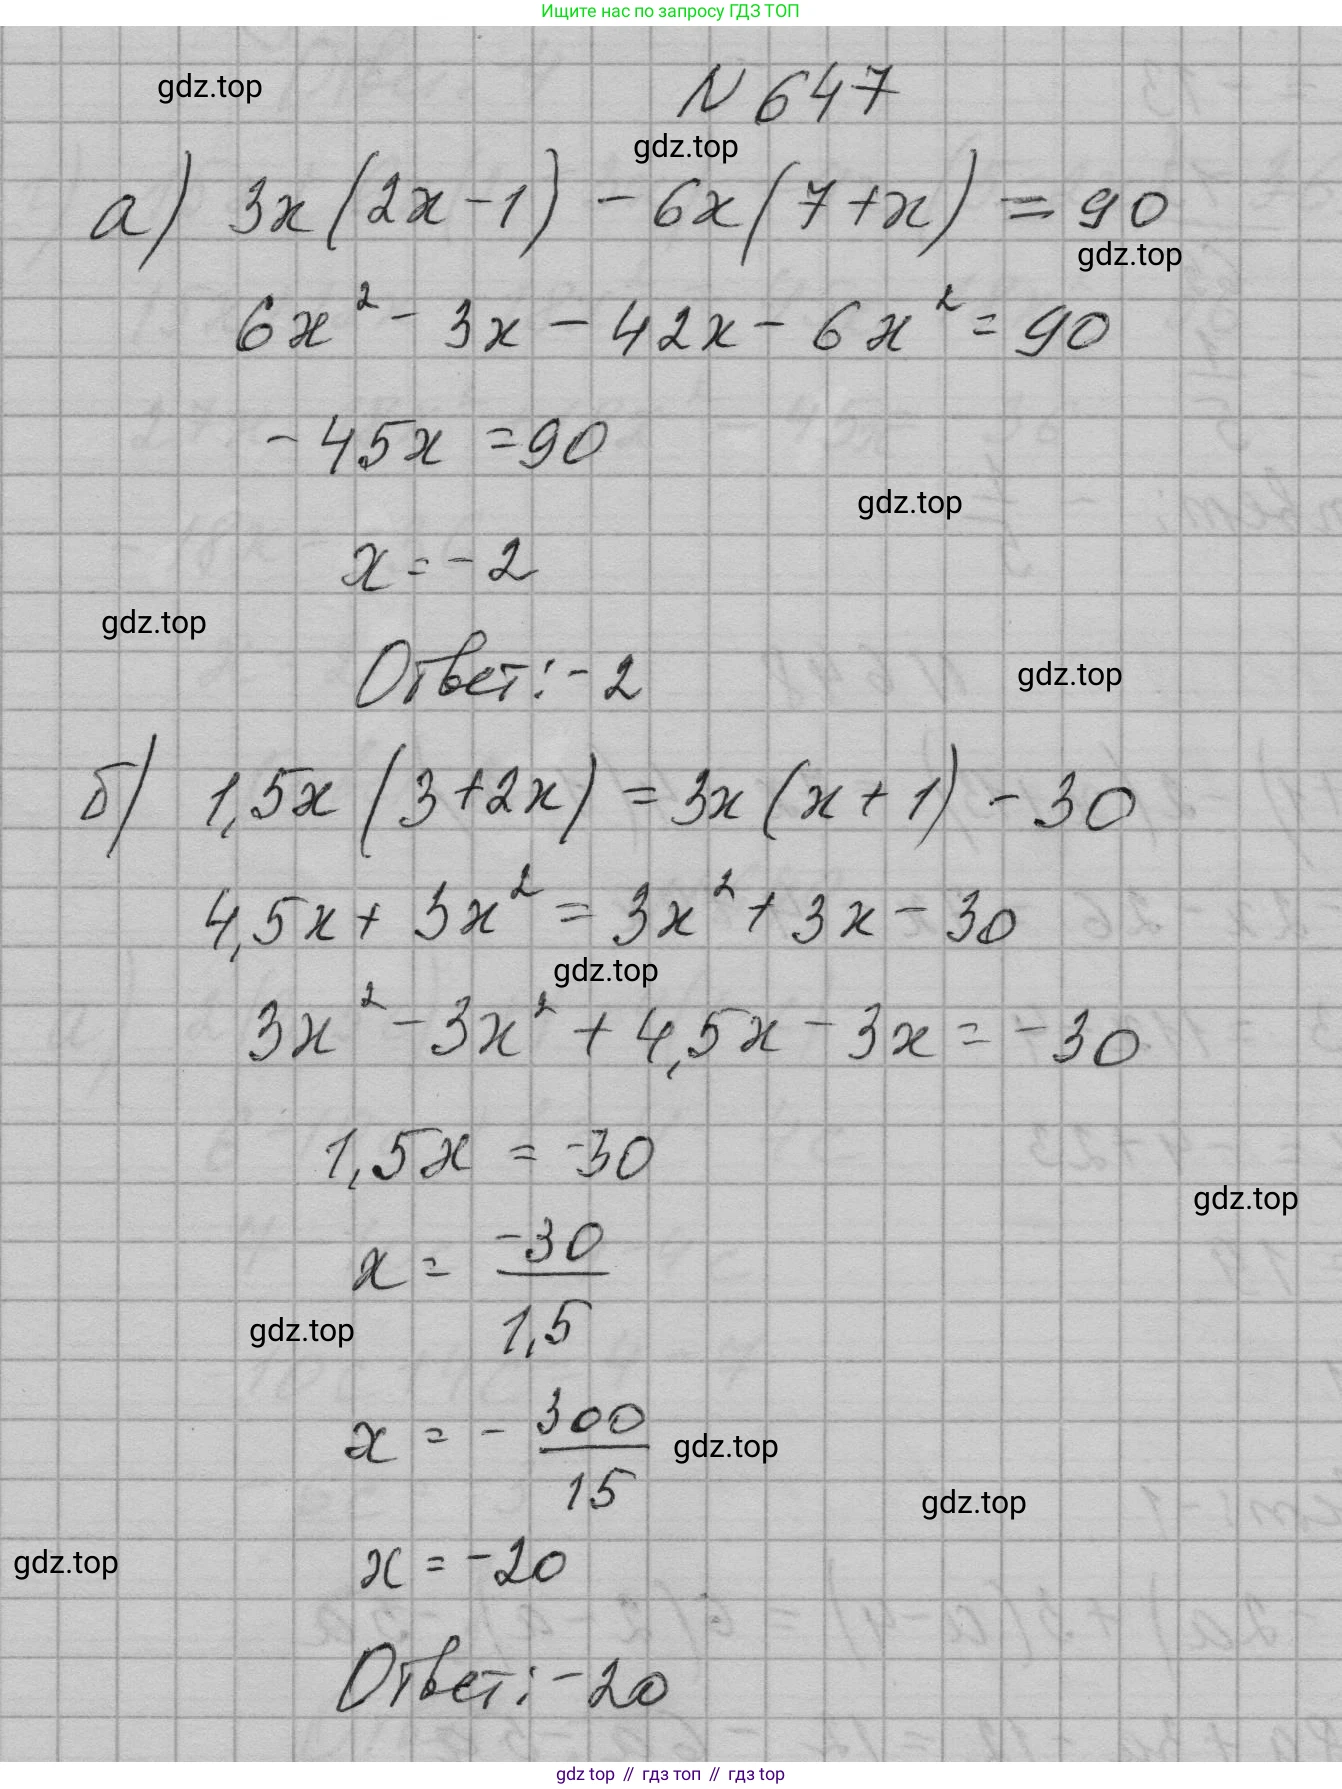 Ищите нас по запросу ГДЗ ТОП
gdz.top
N 647
gdz.top
а) 3x(2x-1) - 6x(7+x) = 90
gdz.top
6x² - 3x - 42x - 6x² = 90
-45x = 90
gdz.top
x = -2
gdz.top
Ответ: -2
gdz.top
б) 1,5x(3+2x) = 3x(x+1) - 30
4,5x + 3x² = 3x² + 3x - 30
gdz.top
3x² - 3x² + 4,5x - 3x = -30
1,5x = -30
gdz.top
x = -30/1,5
gdz.top
x = - 300/15
gdz.top
gdz.top
x = -20
gdz.top
Ответ: -20
gdz top // гдз топ // гдз top